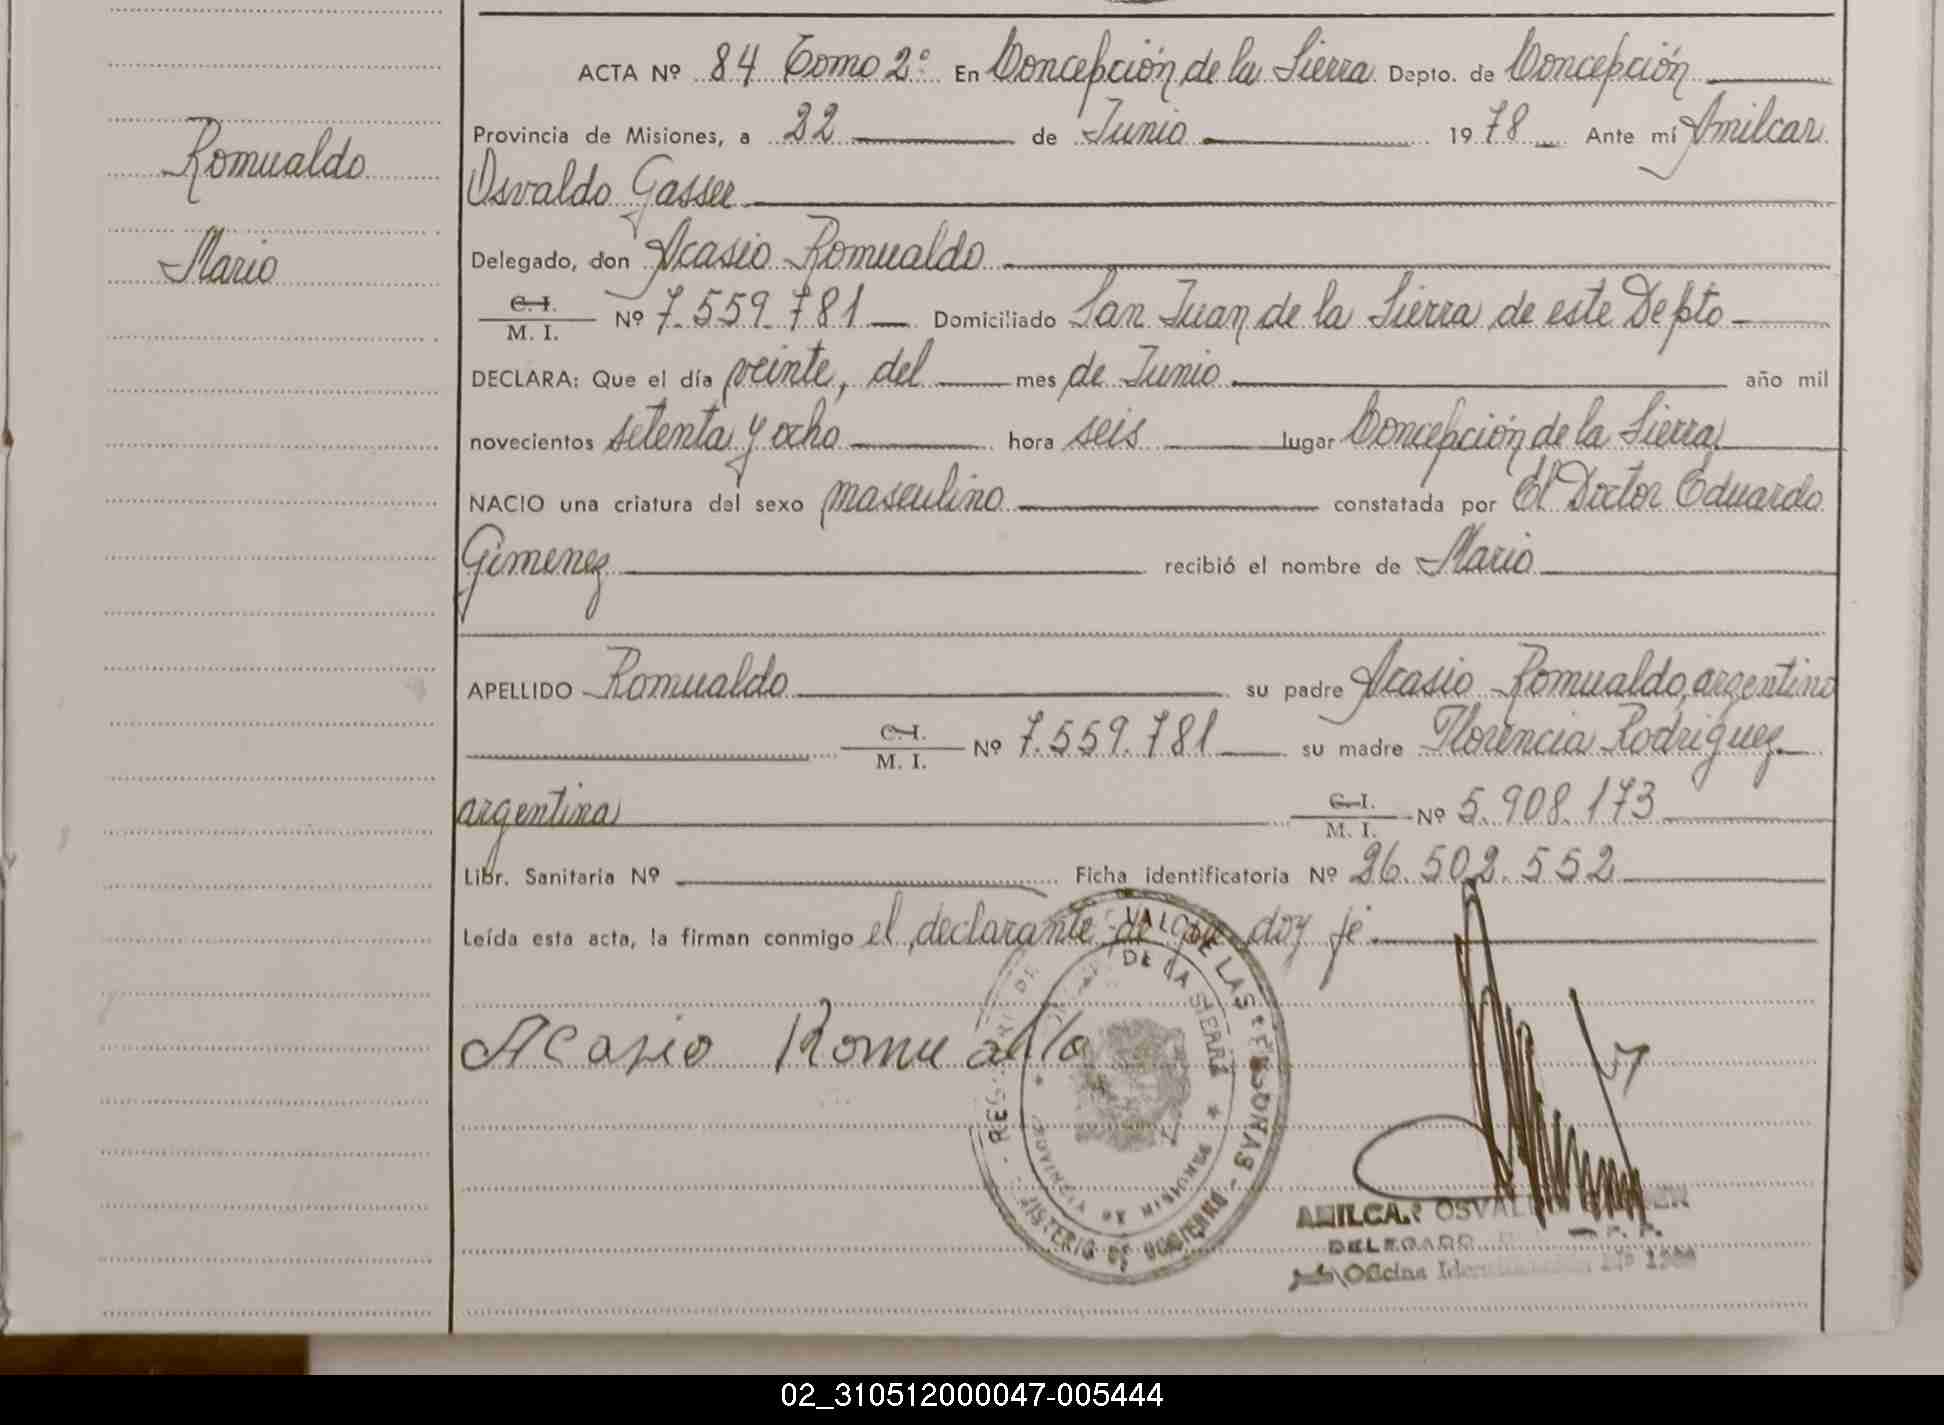 Romualdo
Mario
ACTA Nº 84 Tomo 2º En Concepción de la Sierra Depto. de Concepción
Provincia de Misiones, a 22 de Junio 1978 Ante mí Amilcar
Osvaldo Gasser
Delegado, don Acasio Romualdo
C. I.
M. I. Nº 7.559.781 Domiciliado San Juan de la Sierra de este Depto
DECLARA: Que el día veinte, del mes de Junio año mil
novecientos setenta y ocho hora seis lugar Concepción de la Sierra
NACIO una criatura del sexo masculino constatada por El Doctor Eduardo
Gimenez recibió el nombre de Mario
APELLIDO Romualdo su padre Acasio Romualdo, argentino
C. I.
M. I. Nº 7.559.781 su madre Florencia Rodriguez
argentina C. I.
M. I. Nº 5.908.173
Libr. Sanitaria Nº Ficha identificatoria Nº 26.502.552
Leída esta acta, la firman conmigo el declarante de que doy fé
Acasio Romualdo
REGISTRO DE LAS PERSONAS - MINISTERIO DE GOBIERNO
DE LA SIERRA
PROVINCIA DE MISIONES
AMILCAR OSVALDO
DELEGADO
Oficina
02_310512000047-005444